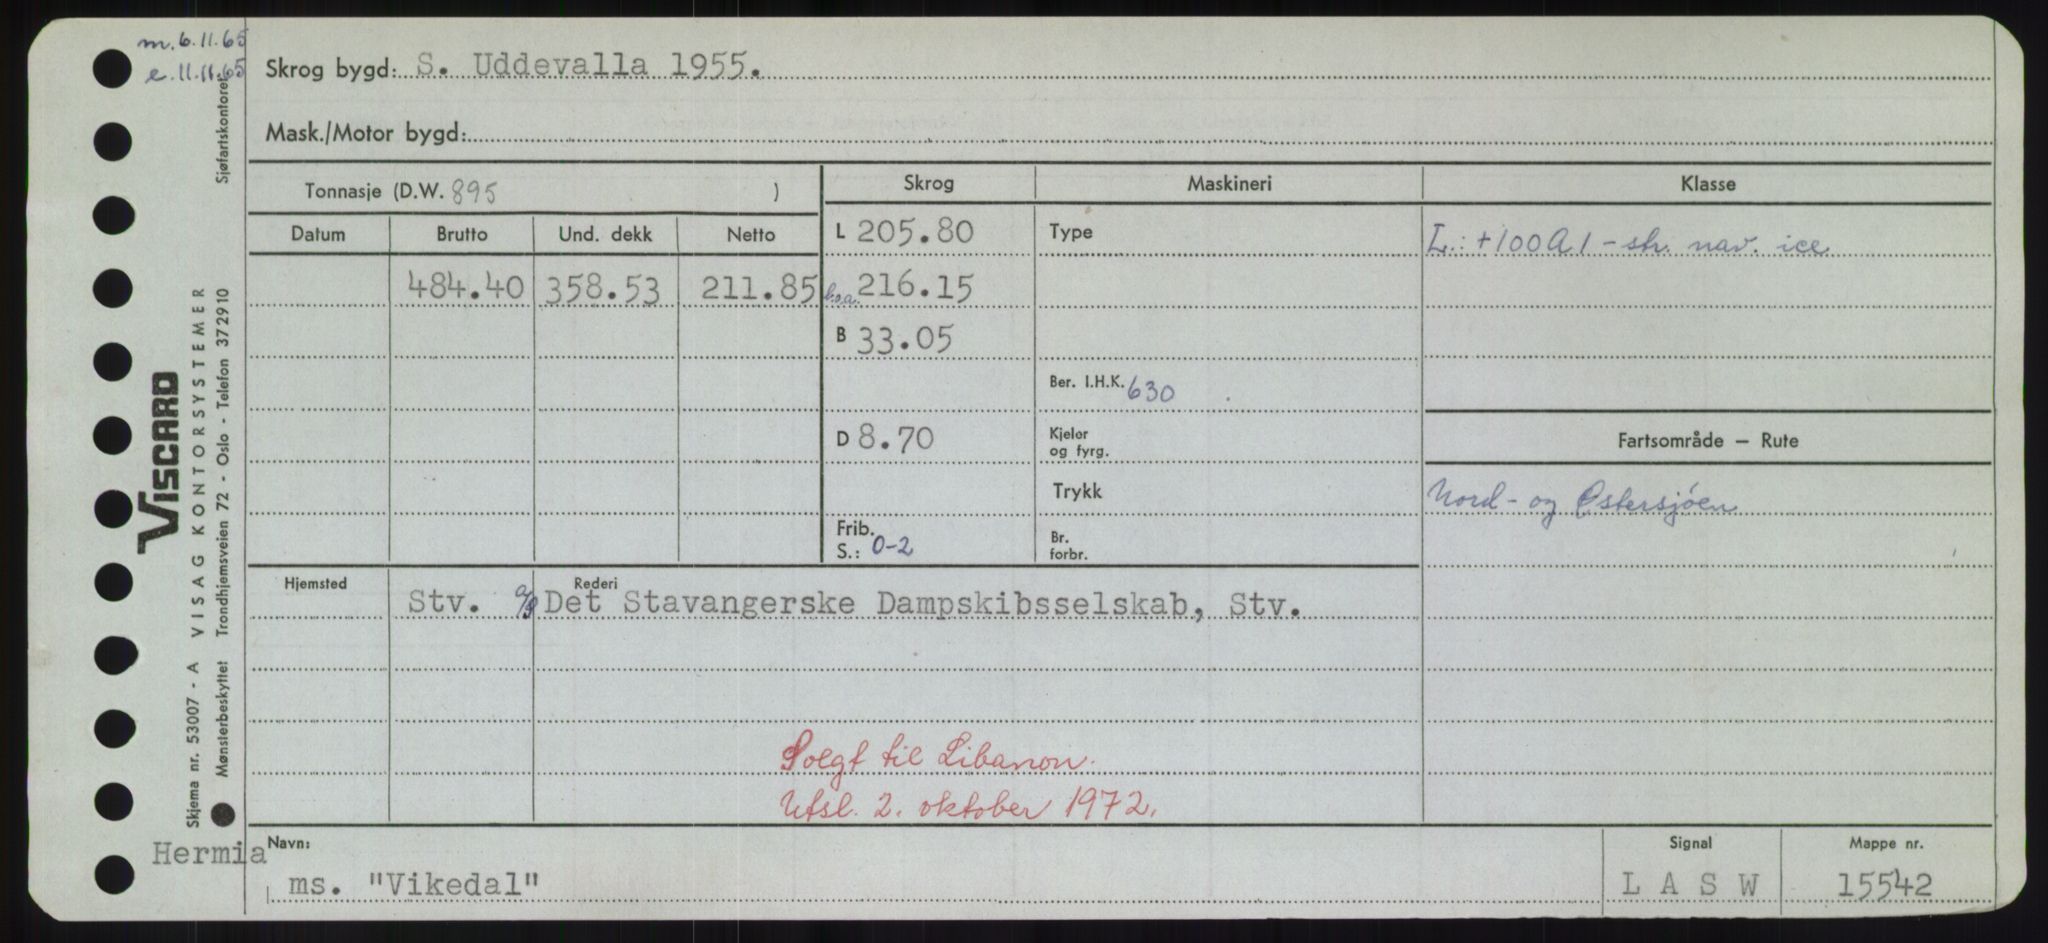 m. 6.11.65
e. 11.11.65
Skrog bygd: S. Uddevalla 1955.
Mask./Motor bygd:
Tonnasje (D.W. 895 )
Skrog Maskineri Klasse
Datum Brutto Und. dekk Netto
L 205.80 Type L.: +100A1 - str. nav. ice
484.40 358.53 211.85 l.o.a. 216.15
B 33.05
Ber. I.H.K. 630
D 8.70 Kjeler og fyrg. Fartsområde — Rute
Trykk Nord- og Østersjøen
Frib. S.: 0-2 Br. forbr.
Hjemsted Rederi
Stv. a/s Det Stavangerske Dampskibsselskab, Stv.
Solgt til Libanon.
Utsl. 2. oktober 1972.
Hermia
Navn: Signal Mappe nr.
ms. "Vikedal" L A S W 15542
VISCARD
Skjema nr. 53007 - A VISAG KONTORSYSTEMER
Mønsterbeskyttet Trondhjemsveien 72 - Oslo - Telefon 37 29 10
Sjøfartskontoret